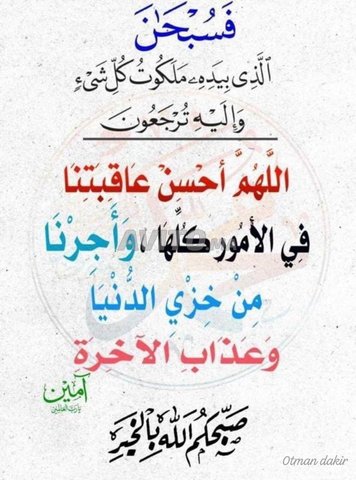 فَسُبْحَٰنَ
ٱلَّذِى بِيَدِهِۦ مَلَكُوتُ كُلِّ شَىْءٍ
وَإِلَيْهِ تُرْجَعُونَ
اللَّهُمَّ أَحْسِنْ عَاقِبَتِنَا
فِي الأُمُورِ كُلِّهَا، وَأَجِرْنَا
مِنْ خِزْيِ الدُّنْيَا
وَعَذَابِ الآخِرَةِ
آمين
يا رب العالمين
صبحكم الله بالخير
Otman dakir